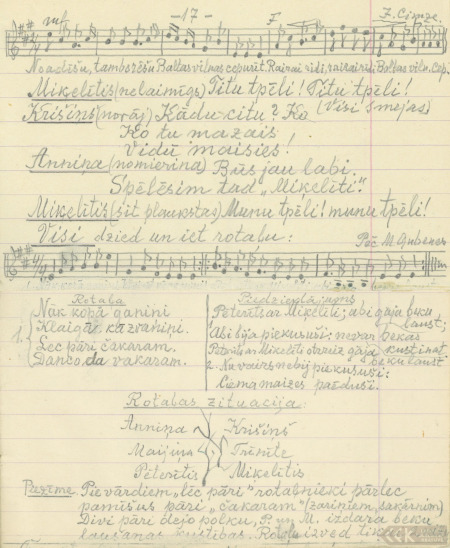 -17-
mf F J. Cimze.
Noadīšu, tamborēšu Baltas vilnas cepurīt. Rairai ridi, rairairai Baltas viln. cep.
Miķelītis (nelaimīgs) Titu tpēli! Titu tpēli!
Krišiņš (norāj) Kādu citu? Ko (Visi smejas)
Ko tu mazais
Vidū maisies!
Anniņa (nomierina) Būs jau labi.
Spēlēsim tad „Miķelīti".
Miķelītis (sit plaukstas) Munu tpēli! munu tpēli!
Visi dzied un iet rotaļu: Pēc M. Gubenes
Rotaļa
Nāk kopā ganiņi
Klaigā kā zvaniņi.
Lec pāri čakaram.
Danco da vakaram.
Piedziedājums
Pēterīts ar Miķelīti; abi gāja beku lauzt;
Abi bija piekusuši; nevar bekas kustināt
Pēterīts ar Miķelīti otrreiz gāja beku lauzt
Nu vairs nebij piekusuši:
Ciema maizes paēduši.
Rotaļas zituācija:
Anniņa Krišiņš
Maijiņa Trīnīte
Pēterītis Miķelītis
Piezīme. Pie vārdiem „lēc pāri" rotaļnieki pārlec
pamīšus pāri „čakaram" (zariņiem, sakārņiem)
Divi pāri dejo polku, P. un M. izdara beku
laušanas kustības. Rotaļu izved